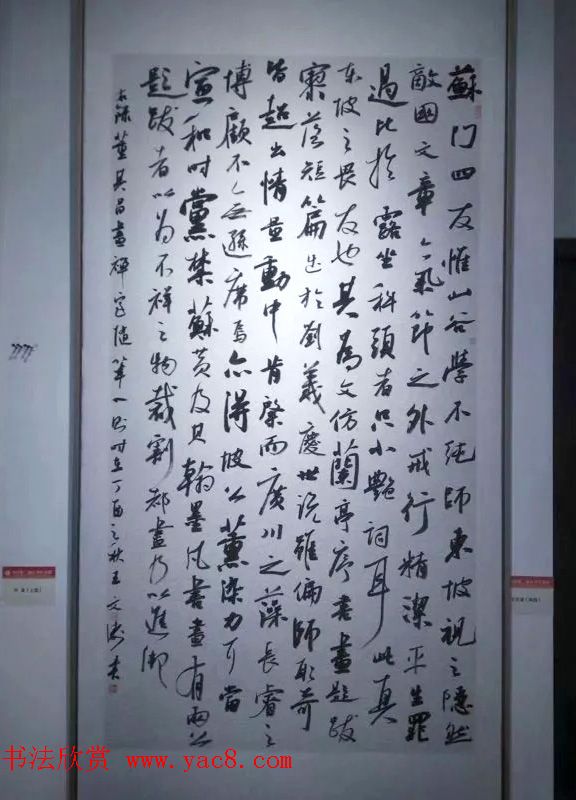 蘇門四友惟山谷學不純師東坡視之隱然
敵國文章氣節之外戒行精潔平生罪
過比於露坐科頭者只小艷詞耳此真
東坡之畏友也其為文仿蘭亭序書畫題跋
寥落短篇出於劉義慶世說雖偏師取奇
皆超出情量動中肯綮而廣川之藻長睿之
博顧不令遜席焉亦得坡公薰染力耳當
宣和時黨禁蘇黃及其翰墨凡書畫有兩公
題跋者以為不祥之物裁割都盡乃以進御
右錄董其昌畫禪室隨筆一則時在丁酉之秋王文
书法欣赏 www.yac8.com